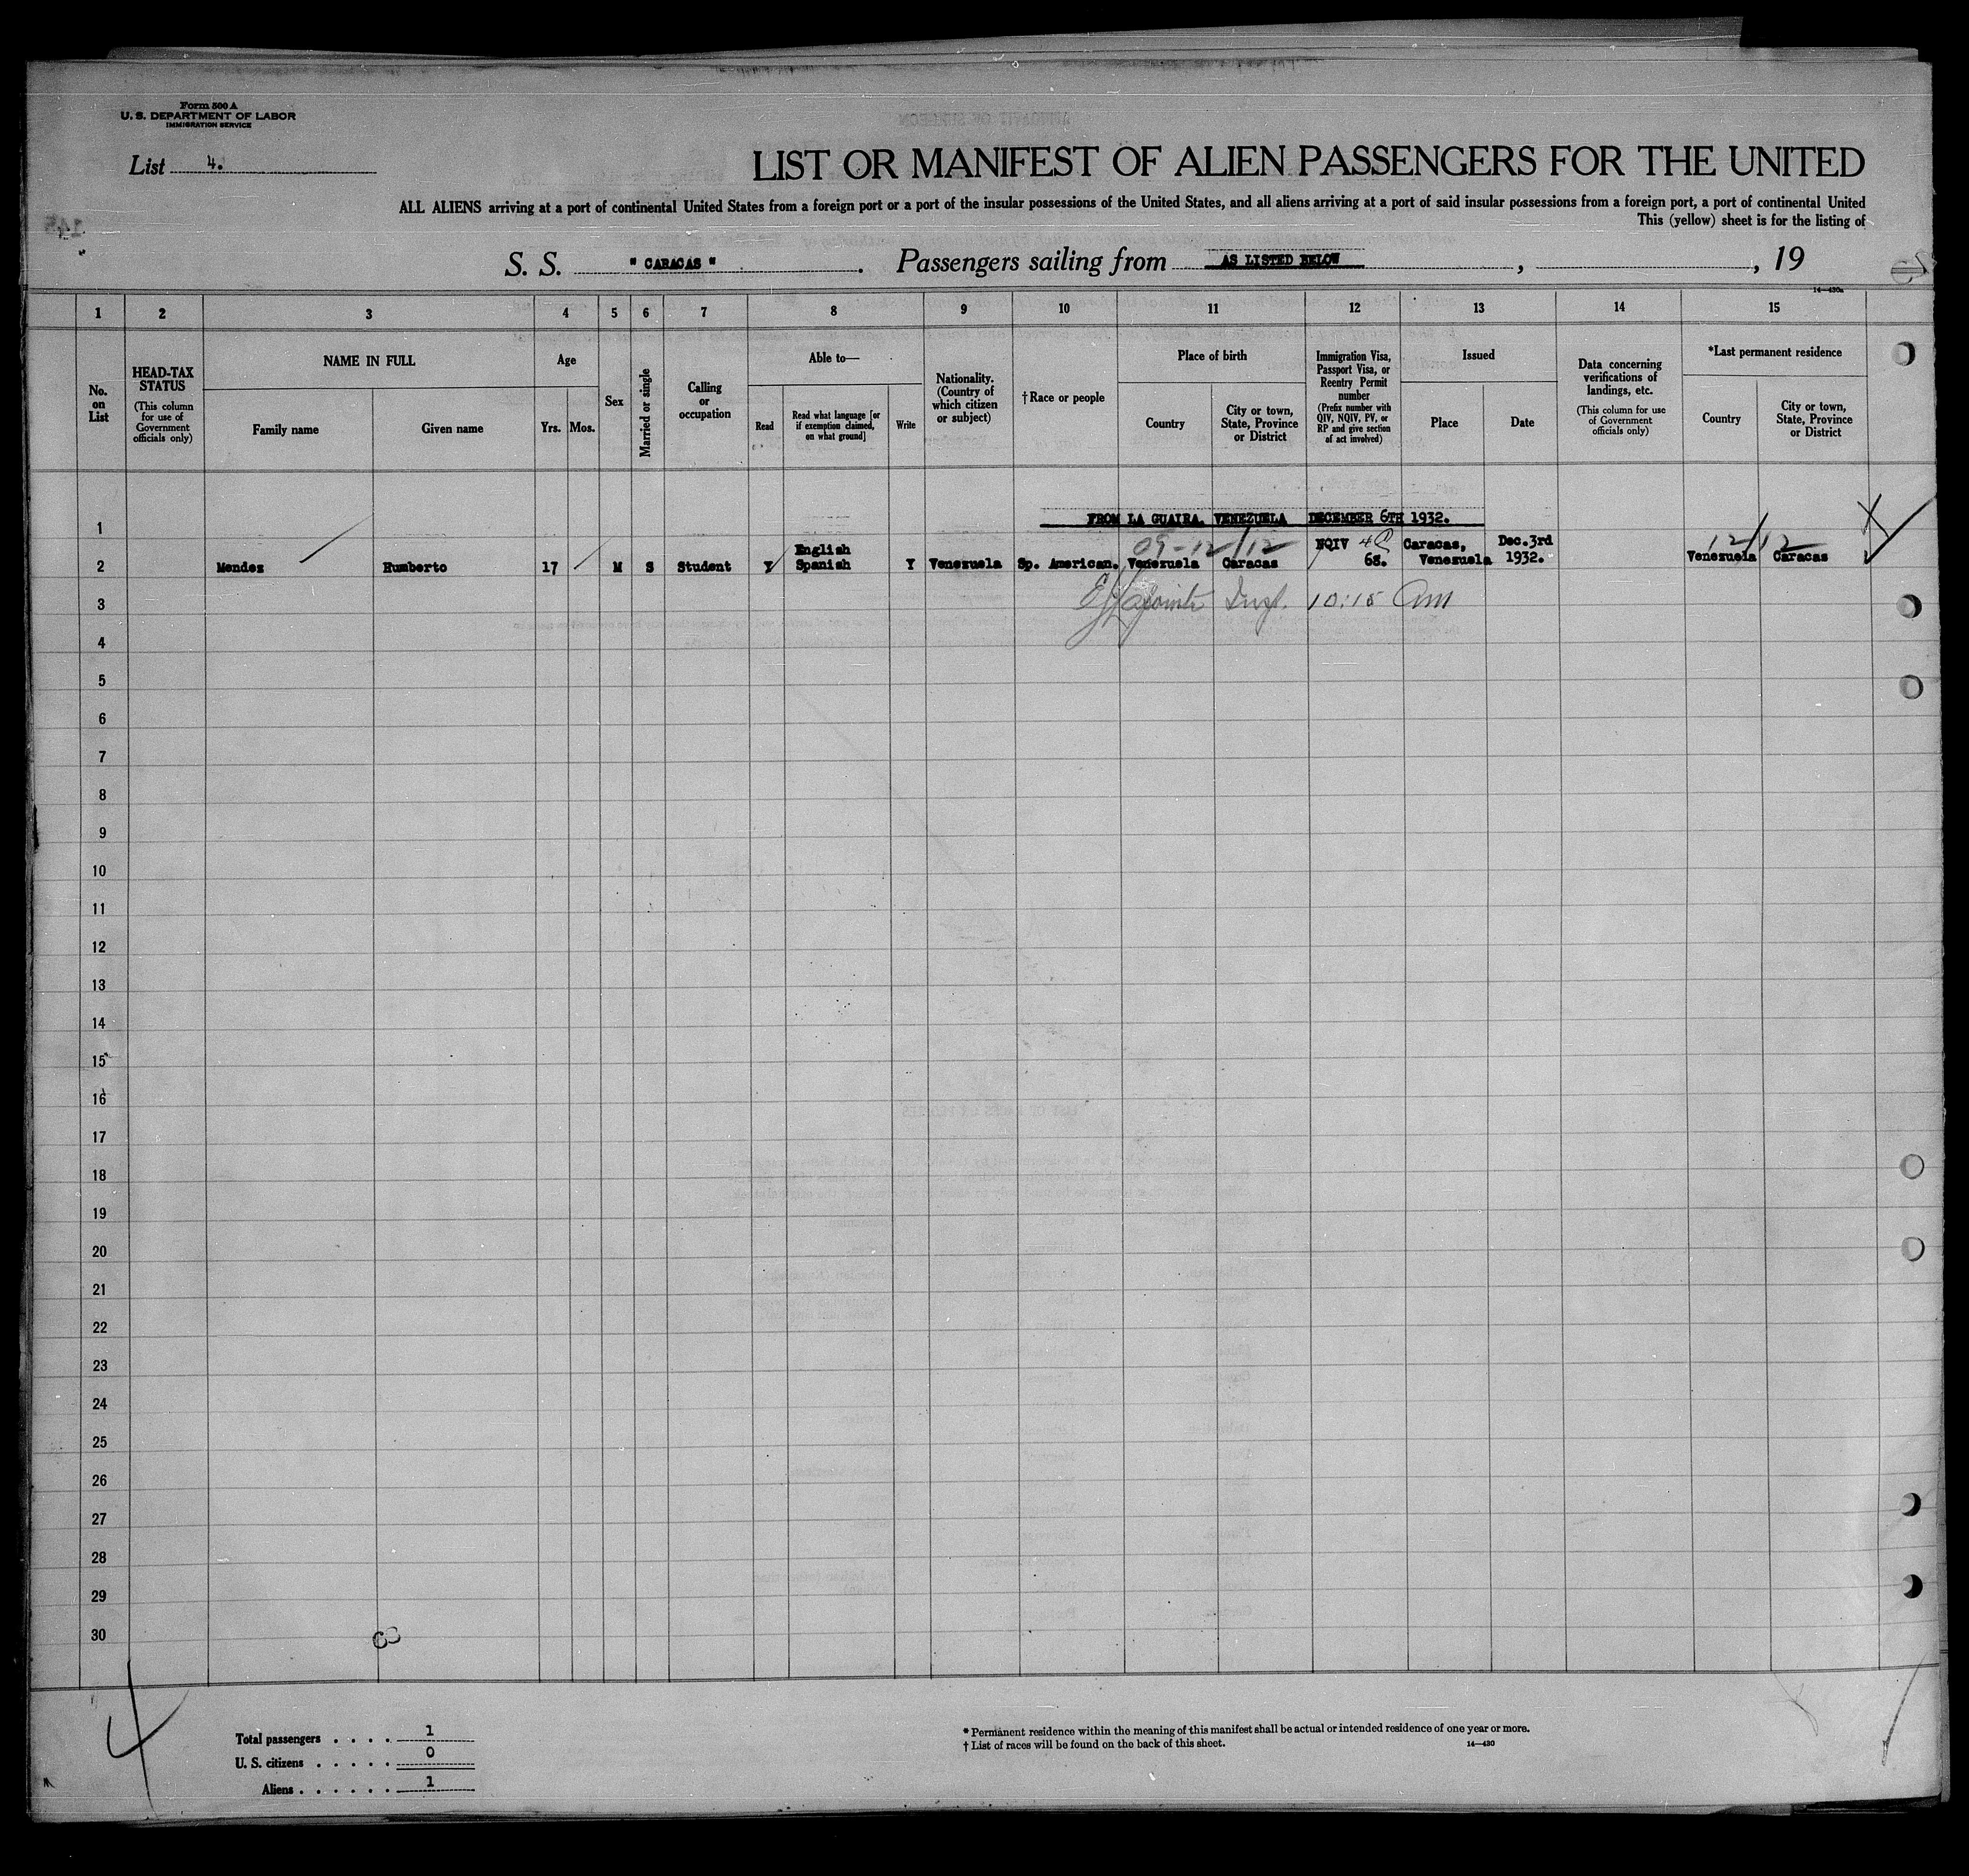 Form 500 A
U. S. DEPARTMENT OF LABOR
IMMIGRATION SERVICE
List 4.
LIST OR MANIFEST OF ALIEN PASSENGERS FOR THE UNITED
ALL ALIENS arriving at a port of continental United States from a foreign port or a port of the insular possessions of the United States, and all aliens arriving at a port of said insular possessions from a foreign port, a port of continental United
This (yellow) sheet is for the listing of
S. S. " CARACAS " . Passengers sailing from AS LISTED BELOW , , 19
14—430a
1 2 3 4 5 6 7 8 9 10 11 12 13 14 15
No. on List
HEAD-TAX STATUS
(This column for use of Government officials only)
NAME IN FULL
Family name
Given name
Age
Yrs.
Mos.
Sex
Married or single
Calling or occupation
Able to—
Read
Read what language [or if exemption claimed, on what ground]
Write
Nationality. (Country of which citizen or subject)
† Race or people
Place of birth
Country
City or town, State, Province or District
Immigration Visa, Passport Visa, or Reentry Permit number
(Prefix number with QIV, NQIV, PV, or RP and give section of act involved)
Issued
Place
Date
Data concerning verifications of landings, etc.
(This column for use of Government officials only)
*Last permanent residence
Country
City or town, State, Province or District
1
FROM LA GUAIRA. VENEZUELA DECEMBER 6TH 1932.
2 Mendez Humberto 17 M S Student Y English Spanish Y Venezuela Sp. American. Venezuela Caracas NQIV 63. Caracas, Venezuela Dec.3rd 1932. Venezuela Caracas
09-12/12
12/12
3
Insp. 10:15 am
4
5
6
7
8
9
10
11
12
13
14
15
16
17
18
19
20
21
22
23
24
25
26
27
28
29
30
4
Total passengers . . . . 1
U. S. citizens . . . . . 0
Aliens . . . . . . 1
* Permanent residence within the meaning of this manifest shall be actual or intended residence of one year or more.
† List of races will be found on the back of this sheet.
14—430